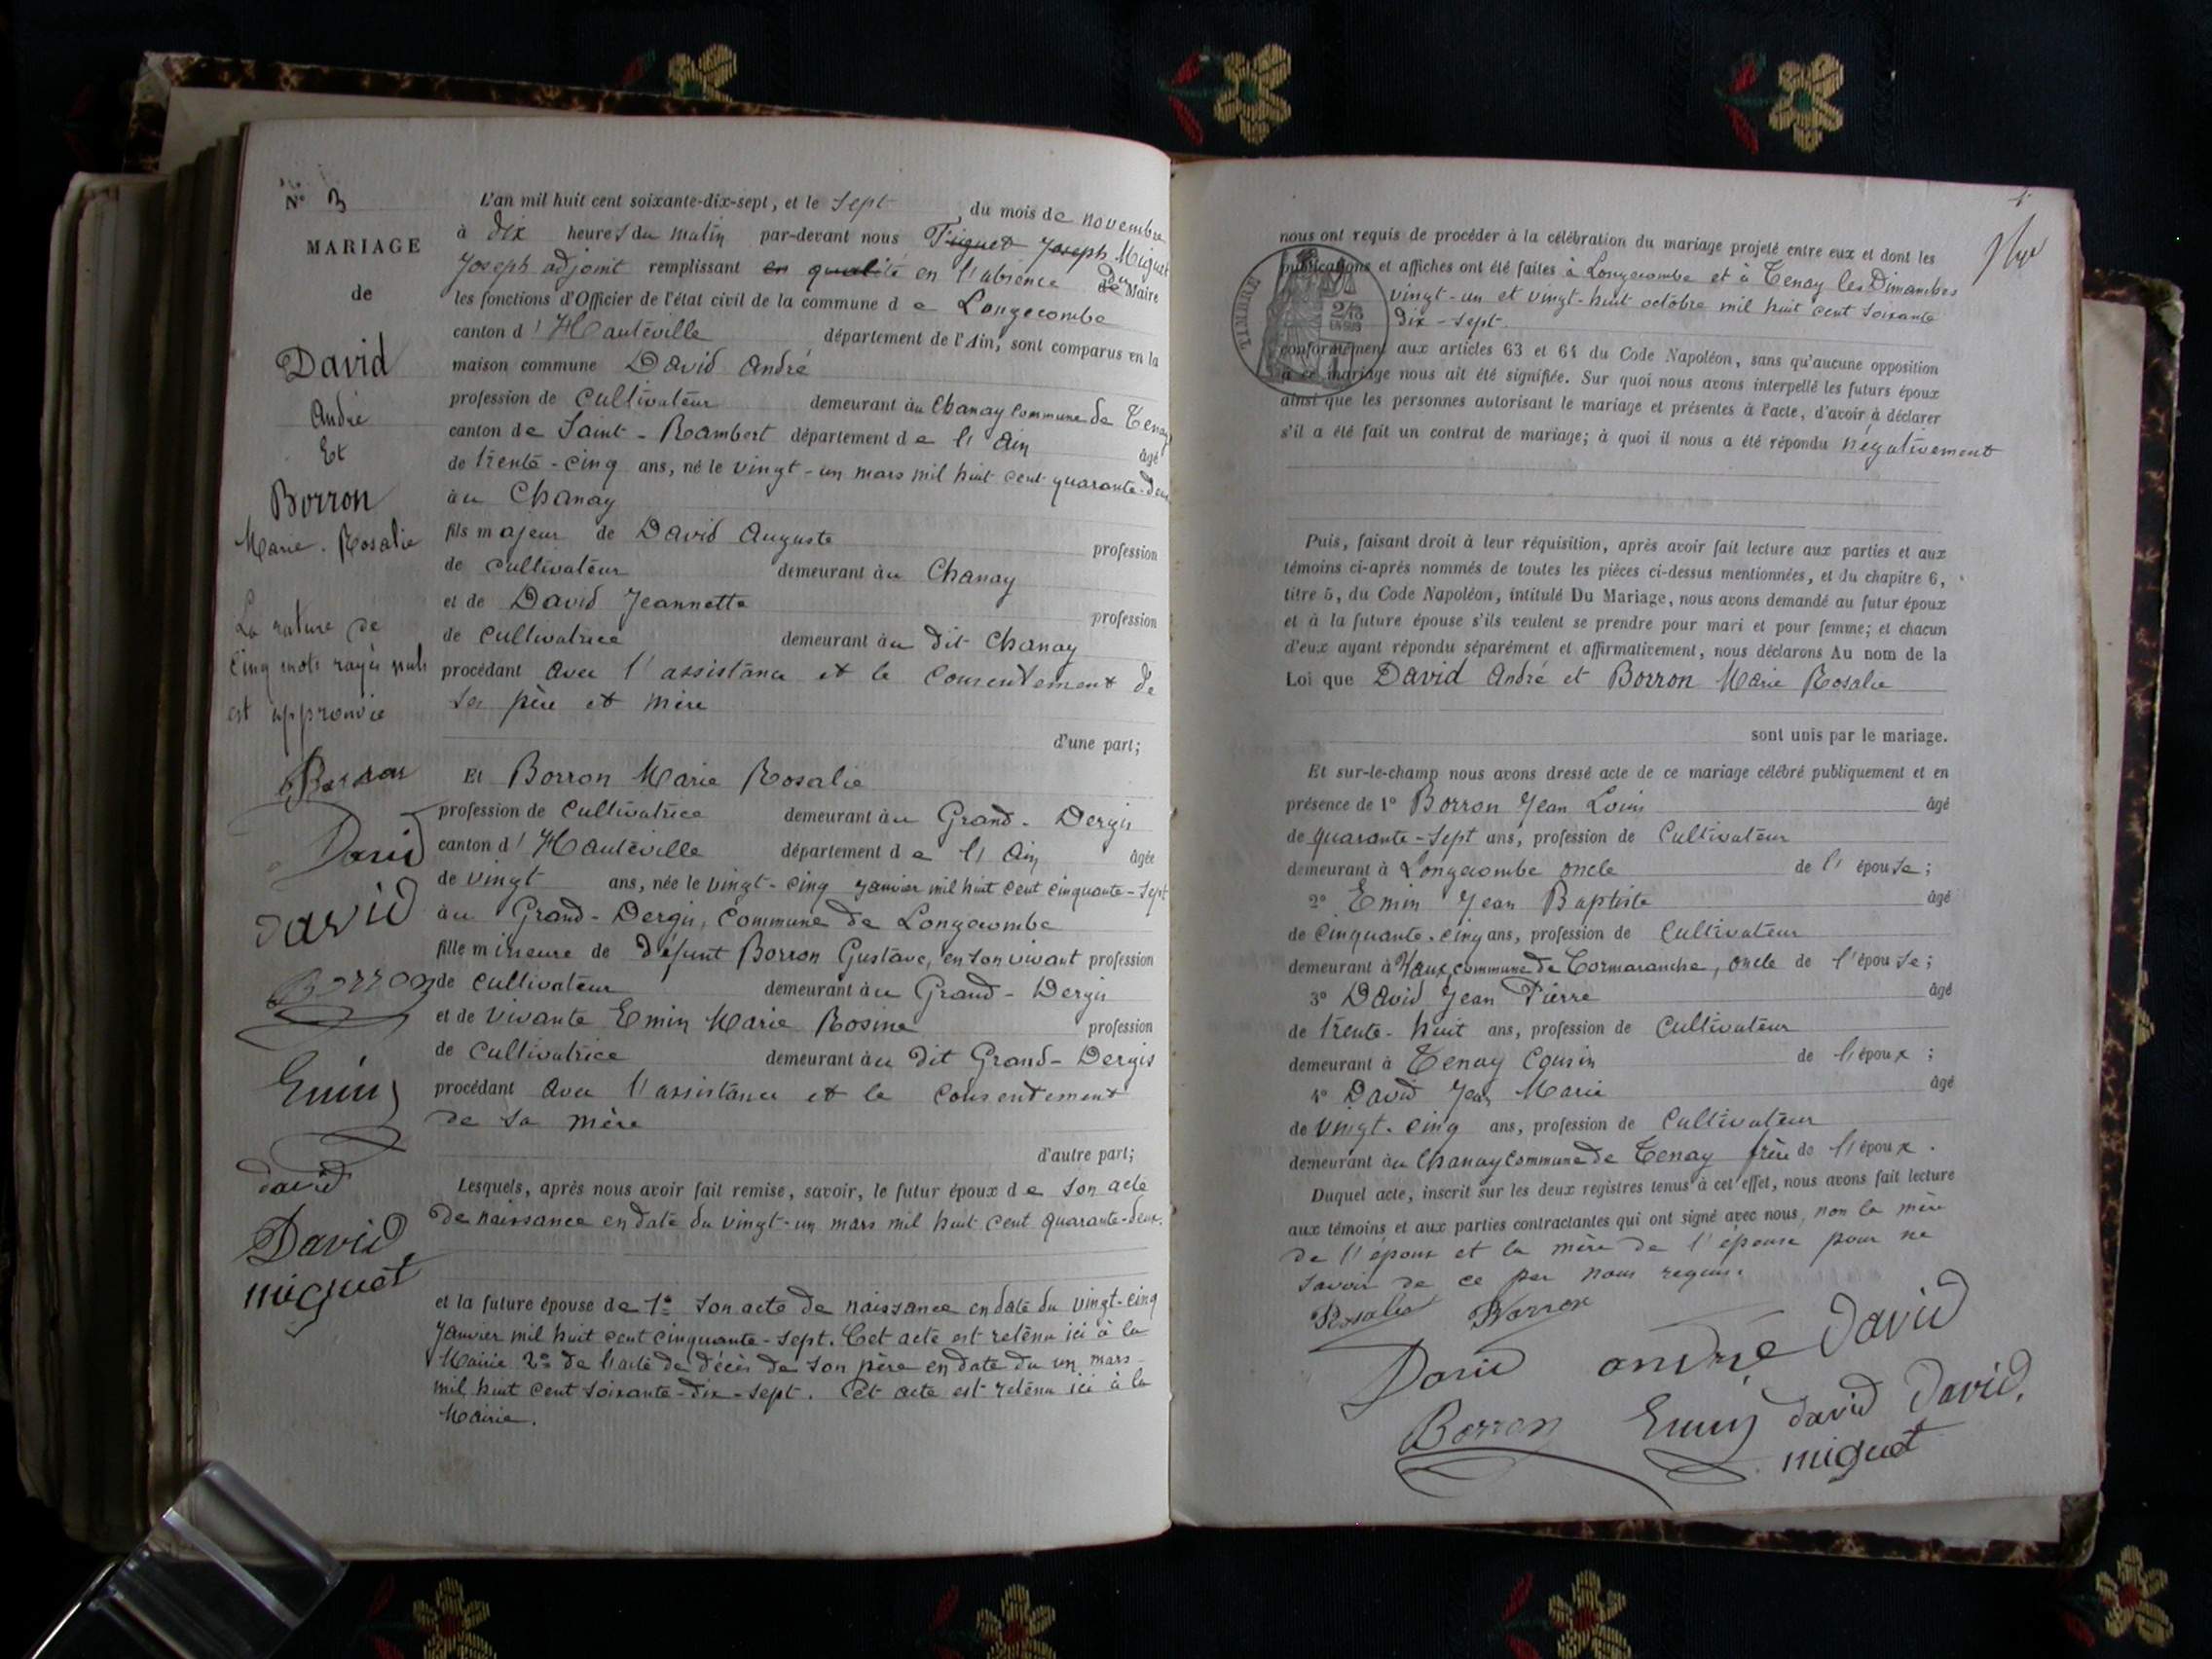 N° 3
MARIAGE
de
David
André
Et
Borron
Marie. Rosalie
La rature de
cinq mots rayés nuls
est approuvée
Borron
David
David
Borron
Emin
david
David
miguet
L'an mil huit cent soixante-dix-sept, et le sept du mois de novembre
à dix heures du matin par-devant nous Joseph Miguet
Joseph adjoint remplissant en qualité en l'absence du Maire
les fonctions d'Officier de l'état civil de la commune de Longecombe
canton d'Hauteville département de l'Ain, sont comparus en la
maison commune David André
profession de cultivateur demeurant au Chanay Commune de Tenay
canton de Saint-Rambert département de l'Ain âgé
de trente-cinq ans, né le vingt-un mars mil huit cent quarante-deux
au Chanay
fils majeur de David Auguste profession
de cultivateur demeurant au Chanay
et de David Jeannette profession
de cultivatrice demeurant au dit Chanay
procédant avec l'assistance et le consentement de
ses père et mère
d'une part;
Et Borron Marie Rosalie
profession de cultivatrice demeurant au Grand-Dergis
canton d'Hauteville département de l'Ain âgée
de vingt ans, née le vingt-cinq janvier mil huit cent cinquante-sept
au Grand-Dergis, Commune de Longecombe
fille mineure de défunt Borron Gustave, en son vivant profession
de cultivateur demeurant au Grand-Dergis
et de vivante Emin Marie Rosine profession
de cultivatrice demeurant au dit Grand-Dergis
procédant avec l'assistance et le consentement
de sa mère
d'autre part;
Lesquels, après nous avoir fait remise, savoir, le futur époux de son acte
de naissance en date du vingt-un mars mil huit cent quarante-deux.
et la future épouse de 1° son acte de naissance en date du vingt-cinq
janvier mil huit cent cinquante-sept. Cet acte est retenu ici à la
Mairie 2° de l'acte de décès de son père en date du un mars
mil huit cent soixante-dix-sept. Cet acte est retenu ici à la
Mairie.
nous ont requis de procéder à la célébration du mariage projeté entre eux et dont les
publications et affiches ont été faites à Longecombe et à Tenay les Dimanches
vingt-un et vingt-huit octobre mil huit cent soixante
dix-sept.
TIMBRE
conformément aux articles 63 et 64 du Code Napoléon, sans qu'aucune opposition
à ce mariage nous ait été signifiée. Sur quoi nous avons interpellé les futurs époux
ainsi que les personnes autorisant le mariage et présentes à l'acte, d'avoir à déclarer
s'il a été fait un contrat de mariage; à quoi il nous a été répondu négativement
Puis, faisant droit à leur réquisition, après avoir fait lecture aux parties et aux
témoins ci-après nommés de toutes les pièces ci-dessus mentionnées, et du chapitre 6,
titre 5, du Code Napoléon, intitulé Du Mariage, nous avons demandé au futur époux
et à la future épouse s'ils veulent se prendre pour mari et pour femme; et chacun
d'eux ayant répondu séparément et affirmativement, nous déclarons Au nom de la
Loi que David André et Borron Marie Rosalie
sont unis par le mariage.
Et sur-le-champ nous avons dressé acte de ce mariage célébré publiquement et en
présence de 1° Borron Jean Louis âgé
de quarante-sept ans, profession de Cultivateur
demeurant à Longecombe oncle de l'épouse;
2° Emin Jean Baptiste âgé
de cinquante-cinq ans, profession de Cultivateur
demeurant à Vaux, commune de Cormaranche, oncle de l'épouse;
3° David Jean Pierre âgé
de trente-huit ans, profession de Cultivateur
demeurant à Tenay Cousin de l'époux;
4° David Jean Marie âgé
de vingt-cinq ans, profession de Cultivateur
demeurant au Chanay Commune de Tenay frère de l'époux.
Duquel acte, inscrit sur les deux registres tenus à cet effet, nous avons fait lecture
aux témoins et aux parties contractantes qui ont signé avec nous, non la mère
de l'époux et la mère de l'épouse pour ne
savoir de ce par nous requis.
Rosalie Borron
David andré David
Borron Emin david David,
miguet